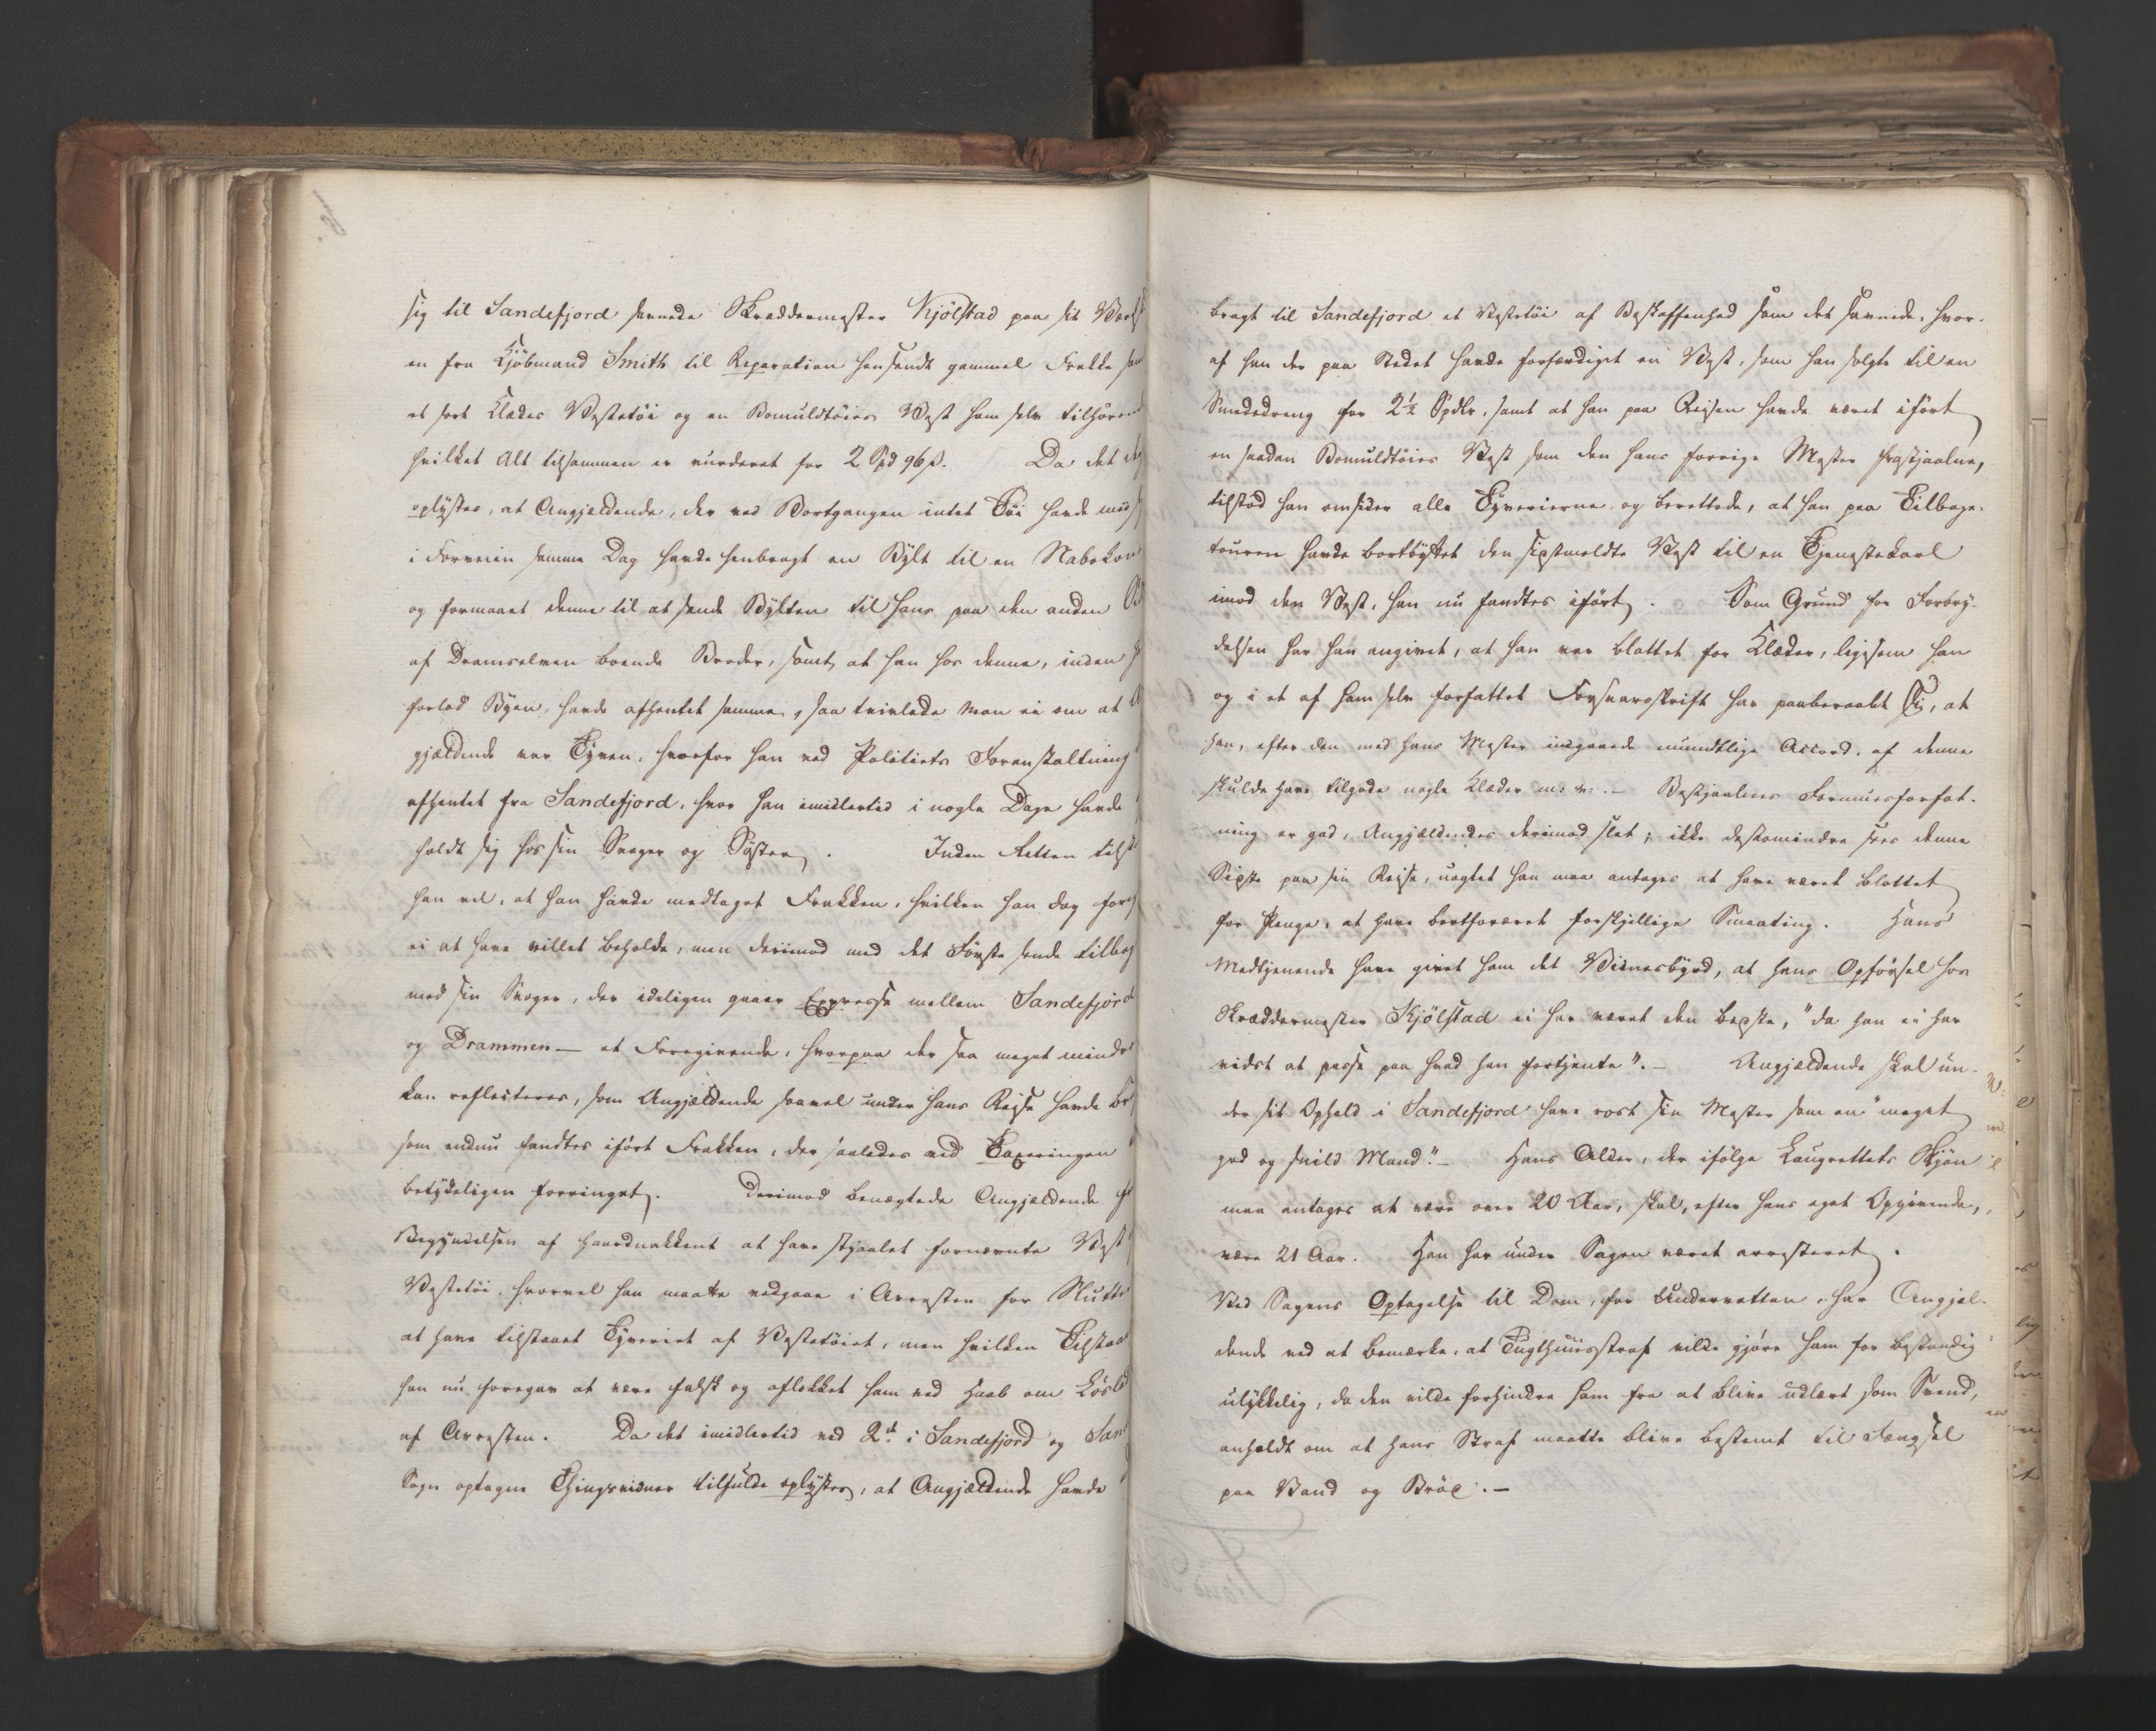 sig til Sandefjord savnede Skræddermester Kjölstad paa sit
en fra Kjöbmand Smith til Reparation hensendt gammel Frakke
et sort Klædes Vestetöi og en Bomuldtöies Vest ham selv
hvilket Alt tilsammen er vurderet for 2 Spd 96 s. Da det
oplystes, at Angjældende, der ved Bortgangen intet Töi havde med
i Forveien samme Dag havde henbragt en Bylt til en
og formaaet denne til at sende Bylten til hans paa den anden
af Dramselven boende Broder, samt at han hos denne, inden
forlod Byen, havde afhentet samme, saa tvivlede man ei om at
gjældende var Tyven, hvorfor han ved Politiets Foranstaltning
afhentet fra Sandefjord, hvor han imidlertid i nogle Dage havde
holdt sig hos sin Svoger og Söster. Inden Retten
han vel, at han havde medtaget Frakken, hvilken han dog
ei at have villet beholde, men derimod med det Förste sende
med sin Svoger, der ideligen gaaer Expresse mellem Sandefjord
og Drammen — et Foregivende, hvorpaa der saa meget mindre
kan reflecteres, som Angjældende saavel under hans Reise havde
som endnu fandtes iført Frakken, der saaledes ved Taxeringen
betydeligen forringet. Derimod benægtede Angjældende
Begyndelsen af haardnakkent at have stjaalet fornævnte Vest
Vestetöi, hvorvel han maatte vedgaae i Arresten for
at have tilstaaet Tyveriet af Vestetöiet, men hvilken
han nu foregav at være falsk og aflokket ham ved Haab om
af Arresten. Da det imidlertid ved 2de i Sandefjord og
Sogn optagne Thingsvidner tilfulde oplystes, at Angjældende havde
bragt til Sandefjord et Vestetöi af Beskaffenhed som det savnede, hvor-
af han der paa Stedet havde forfærdiget en Vest, som han solgte til en
Smededreng for 2½ Spdlr, samt at han paa Reisen havde været iført
en saadan Bomuldtöies Vest som den hans forrige Mester frastjaalne,
tilstod han omsider alle Tyverierne og berettede, at han paa Tilbage-
touren havde bortbyttet den sidstmeldte Vest til en Tjenestekarl
imod den Vest, han nu fandtes iført. Som Grund for Forbry-
delsen har han angivet, at han var blottet for Klæder, ligesom han
og i et af ham selv forfattet Forsvarsskrift har paaberaabt sig, at
han, efter den med hans Mester indgaaede mundtlige Accord, af denne
skulde have tilgode nogle Klæder m: v: — Bestjaalnes Formuesforfat-
ning er god, Angjældendes derimod slet; ikke destomindre sees denne
Sidste paa sin Reise, uagtet han maa antages at have været blottet
for Penge, at have bortforæret forskjellige Smaating. Hans
Medtjenende have givet ham det Vidnesbyrd, at hans Opförsel hos
Skræddermester Kjölstad ei har været den bedste, "da han ei har
vidst at passe paa hvad han fortjente". — Angjældende skal un-
der sit Ophold i Sandefjord have rost sin Mester som en "meget
god og snild Mand". — Hans Alder, der ifölge Laugrettets Skjön
maa antages at være over 20 Aar, skal, efter hans eget Opgivende,
være 21 Aar. Han har under Sagen været arresteret.
Ved Sagens Optagelse til Dom, for Underretten, har Angjæl-
dende ved at bemærke, at Tugthuusstraf vilde gjöre ham for bestandig
ulykkelig, da den vilde forhindre ham fra at blive udlært som Svend,
anholdt om at hans Straf maatte blive bestemt til Fængsel
paa Vand og Bröd. —